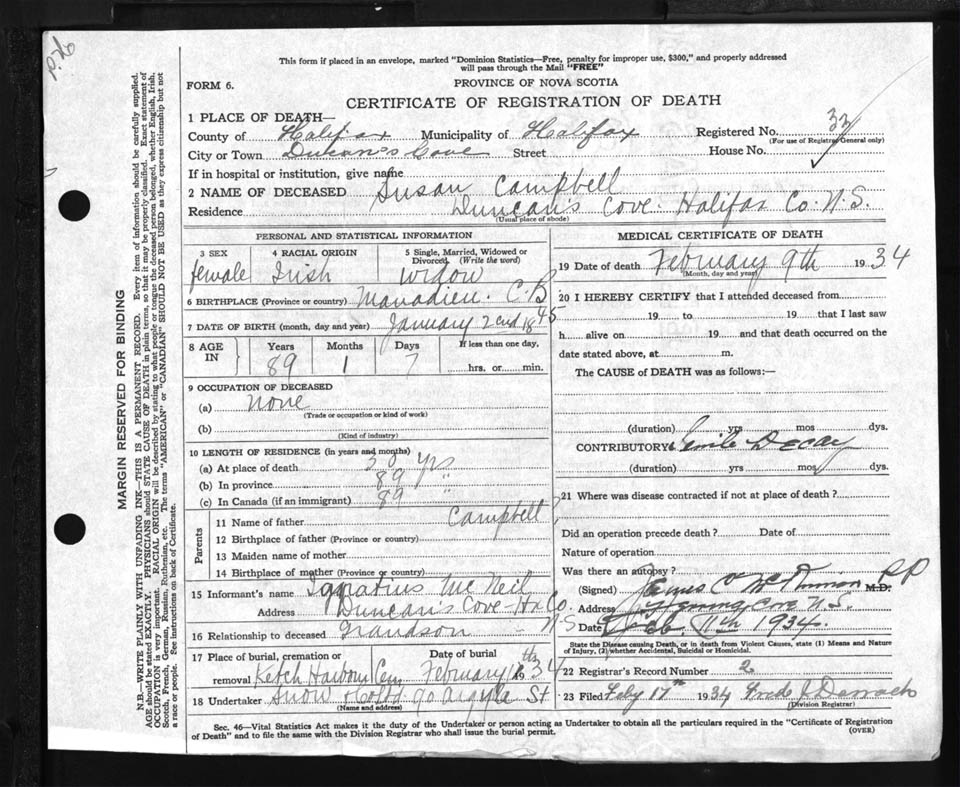 P. 26
This form if placed in an envelope, marked "Dominion Statistics—Free, penalty for improper use, $300," and properly addressed
will pass through the Mail "FREE"
FORM 6.
PROVINCE OF NOVA SCOTIA
CERTIFICATE OF REGISTRATION OF DEATH
1 PLACE OF DEATH—
County of Halifax Municipality of Halifax Registered No. 33
(For use of Registrar General only)
City or Town Duncan's Cove Street House No.
If in hospital or institution, give name
2 NAME OF DECEASED Susan Campbell
Residence Duncan's Cove. Halifax Co. N.S.
(Usual place of abode)
PERSONAL AND STATISTICAL INFORMATION
3 SEX 4 RACIAL ORIGIN 5 Single, Married, Widowed or
Divorced (Write the word)
female Irish widow
6 BIRTHPLACE (Province or country) Manadieu. C.B.
7 DATE OF BIRTH (month, day and year) January 2end 1845
8 AGE IN Years Months Days If less than one day,
89 1 7 hrs. or min.
9 OCCUPATION OF DECEASED
(a) none
(Trade or occupation or kind of work)
(b)
(Kind of industry)
10 LENGTH OF RESIDENCE (in years and months)
(a) At place of death 30 yrs
(b) In province 89 "
(c) In Canada (if an immigrant) 89 "
Parents
11 Name of father Campbell ?
12 Birthplace of father (Province or country)
13 Maiden name of mother
14 Birthplace of mother (Province or country)
15 Informant's name Ignatius McNeil
Address Duncan's Cove Hx Co. N.S.
16 Relationship to deceased Grandson
17 Place of burial, cremation or removal Date of burial
Ketch Harbour Cem February 1934
18 Undertaker Snow & Co Ltd 90 Argyle St
(Name and address)
MEDICAL CERTIFICATE OF DEATH
19 Date of death February 9th 1934
(Month, day and year)
20 I HEREBY CERTIFY that I attended deceased from
19 to 19 that I last saw
h alive on 19 and that death occurred on the
date stated above, at m.
The CAUSE of DEATH was as follows:—
(duration) yrs mos dys.
CONTRIBUTORY Senile Decay
(duration) yrs mos dys.
21 Where was disease contracted if not at place of death?
Did an operation precede death? Date of
Nature of operation
Was there an autopsy?
(Signed) James C P.P. M.D.
Address Herring Cove N.S.
Date Feb 11th 1934.
State the Disease causing Death, or in death from Violent Causes, state (1) Means and Nature
of Injury, (2) whether Accidental, Suicidal or Homicidal.
22 Registrar's Record Number 2
23 Filed Feby 17th 1934 Darrach
(Division Registrar)
Sec. 46—Vital Statistics Act makes it the duty of the Undertaker or person acting as Undertaker to obtain all the particulars required in the "Certificate of Registration
of Death" and to file the same with the Division Registrar who shall issue the burial permit.
(OVER)
MARGIN RESERVED FOR BINDING
N.B.—WRITE PLAINLY WITH UNFADING INK—THIS IS A PERMANENT RECORD. Every item of information should be carefully supplied.
AGE should be stated EXACTLY. PHYSICIANS should STATE CAUSE OF DEATH in plain terms, so that it may be properly classified. Exact statement of
OCCUPATION is very important. RACIAL ORIGIN will be described by stating to what people or tongue the deceased person belonged, whether English, Irish,
Scotch, French, German, Russian, Ruthenian, etc. The terms "AMERICAN" or "CANADIAN" SHOULD NOT BE USED as they express citizenship but not
a race or people. See instructions on back of Certificate.